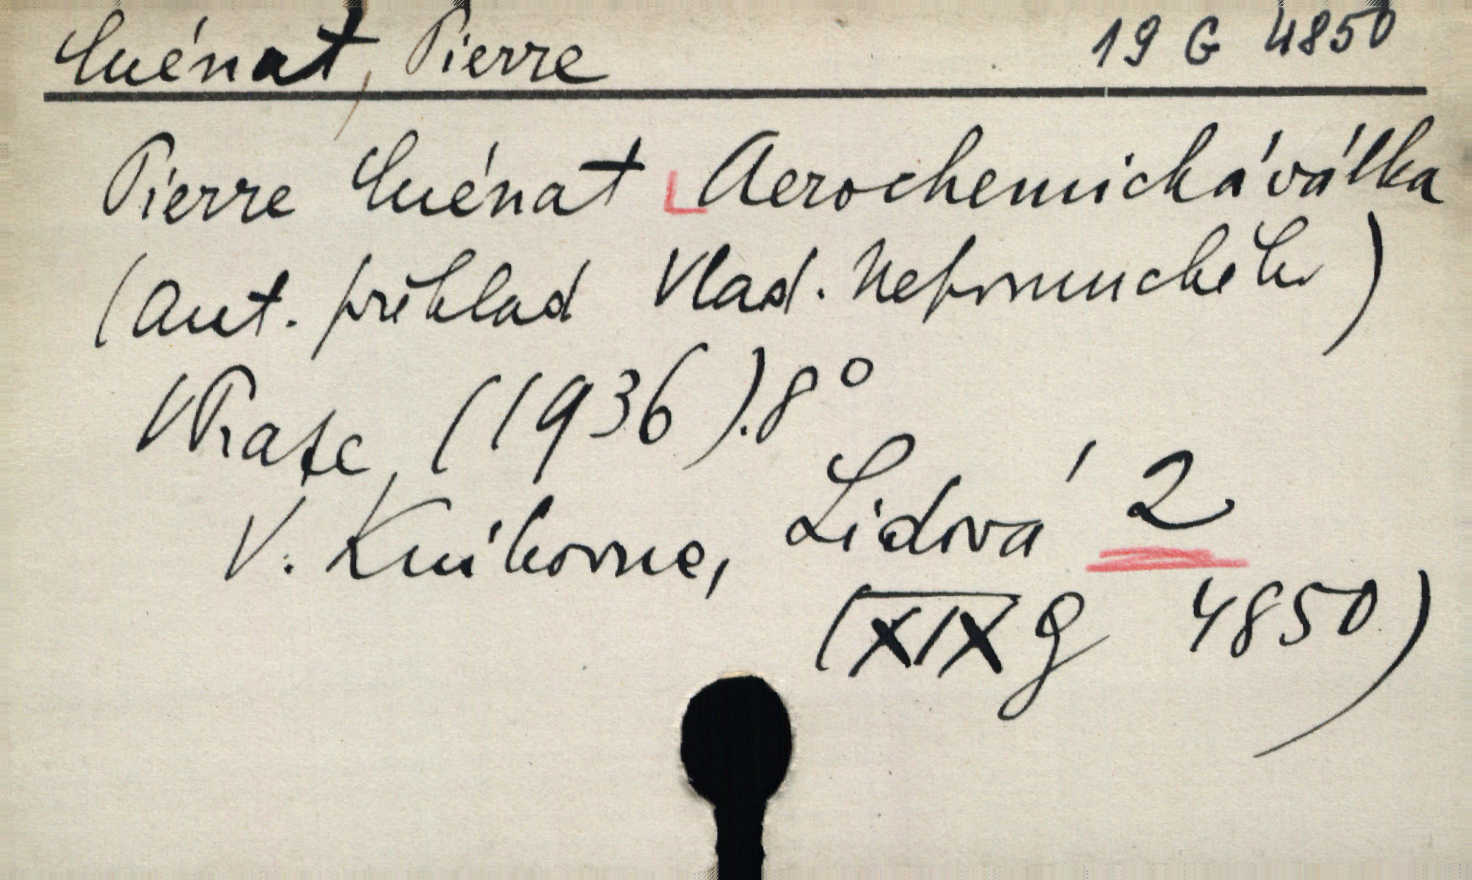 Cuénat, Pierre 19 G 4850
Pierre Cuénat Aerochemická válka
(Aut. překlad Vlad. Nepomuckého)
V Praze, (1936). 8°
V: Knihovna, Lidová 2
(XIX G 4850)